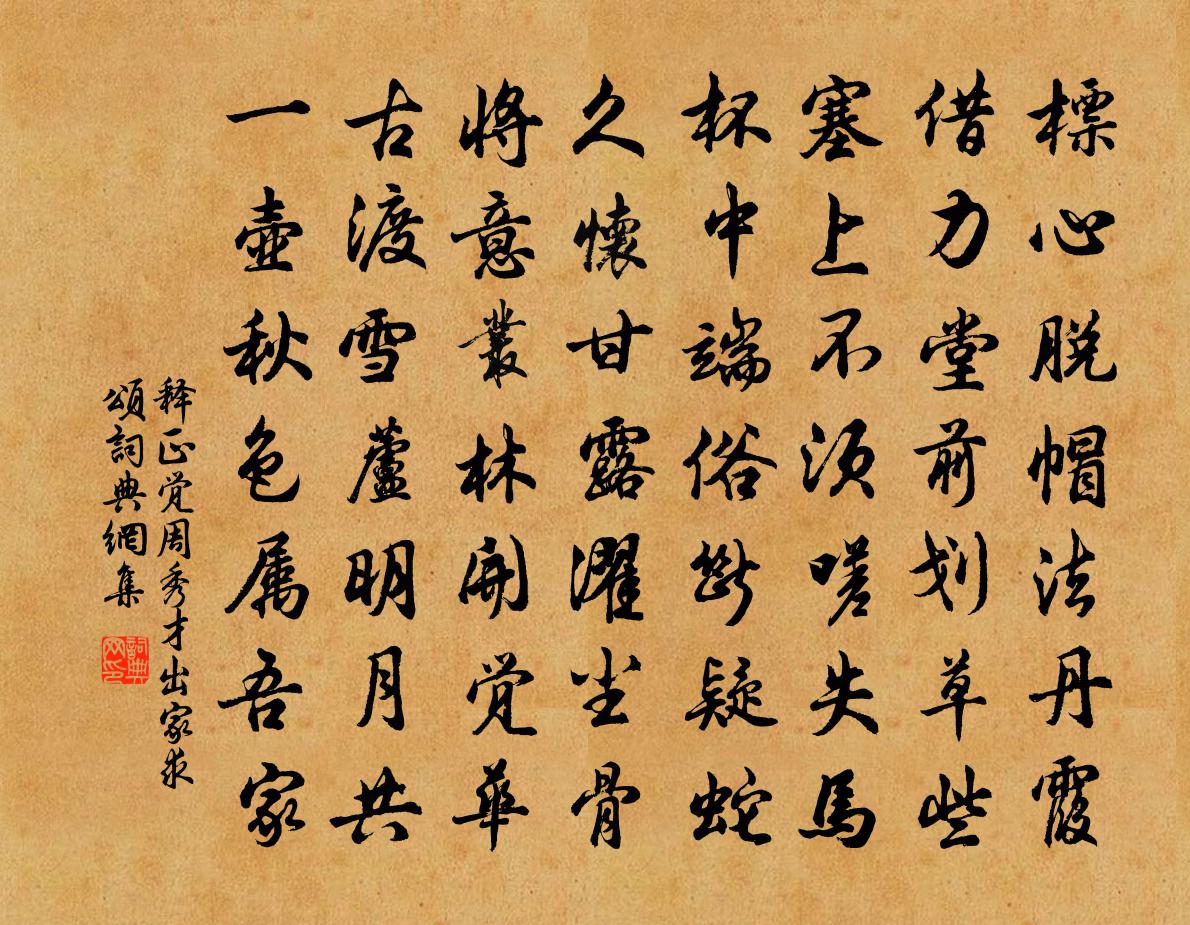 標心脱帽法丹霞
借力堂前划草些
塞上不须嗟失馬
杯中端俗斷疑蛇
久懷甘露濯尘骨
將意叢林開觉華
古渡雪蘆明月共
一壺秋色属吾家
释正觉周秀才出家求
頌詞典網集
詞典网印